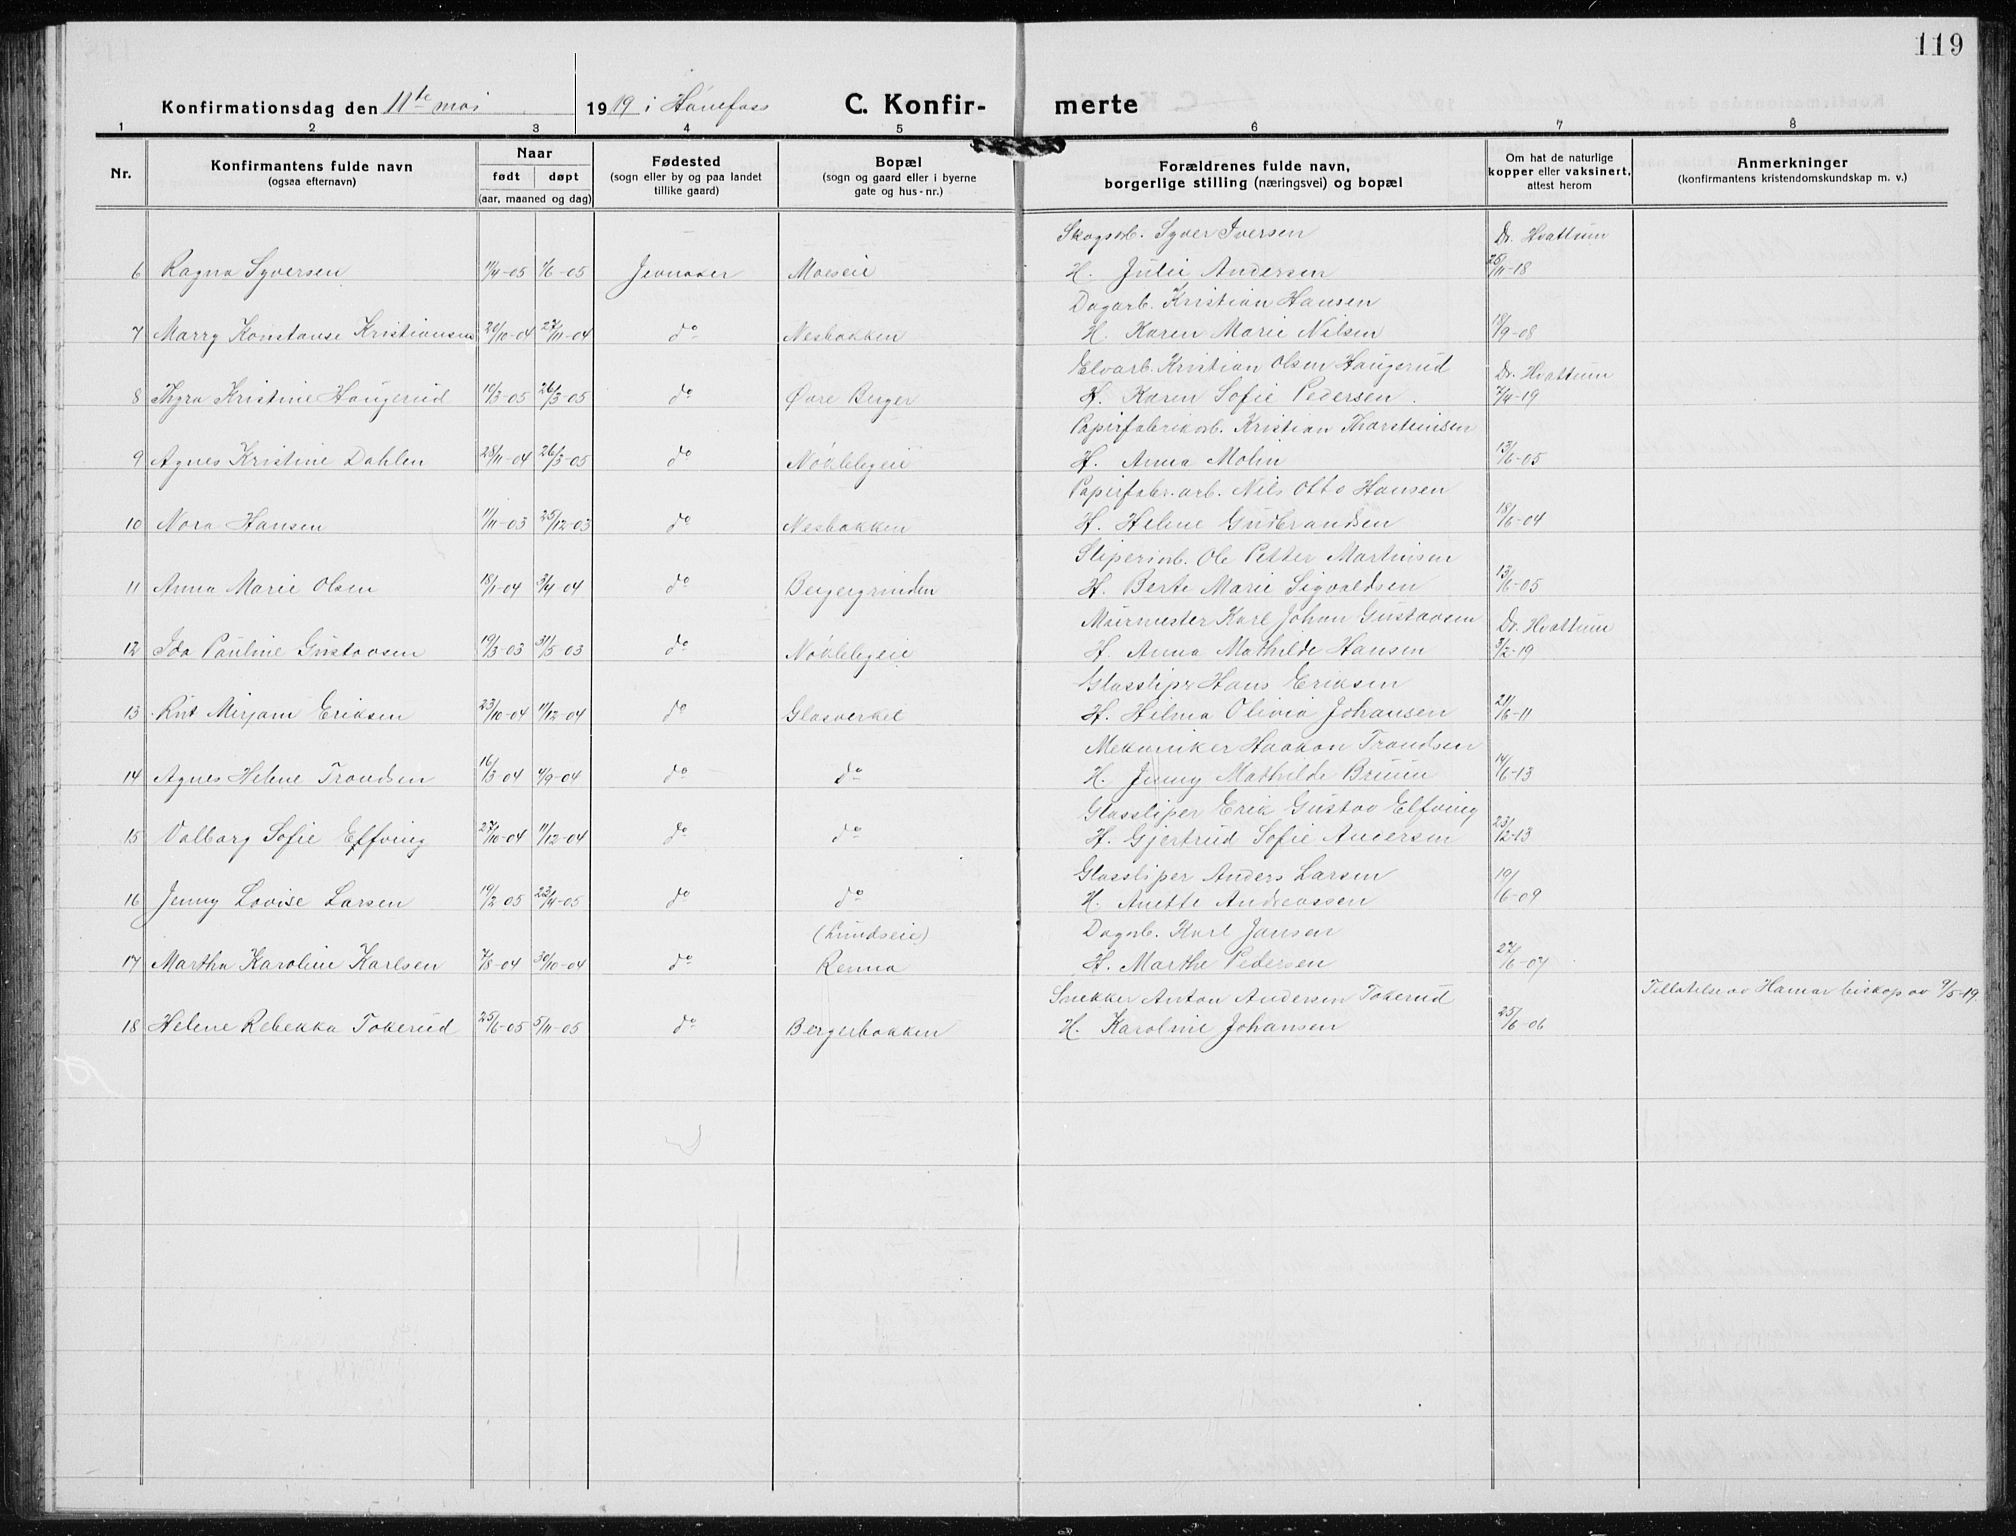 119
Konfirmationsdag den 11te mai 1919 i Hönefoss C. Konfirmerte
1 2 3 4 5 6 7 8
Nr. Konfirmantens fulde navn (ogsaa efternavn) Naar født døpt (aar, maaned og dag) Fødested (sogn eller by og paa landet tillike gaard) Bopæl (sogn og gaard eller i byerne gate og hus-nr.) Forældrenes fulde navn, borgerlige stilling (næringsvei) og bopæl Om hat de naturlige kopper eller vaksinert, attest herom Anmerkninger (konfirmantens kristendomskundskap m. v.)
Skogsarb. Syver Iversen Dr. Hvattum
6 Ragna Syversen 11/4-05 1/6-05 Jevnaker Moeseie H. Julie Andersen 25/11-18
Dagarb. Kristian Hansen
7 Marry Konstanse Kristiansen 20/10-04 27/11-04 do Nesbakken H. Karen Marie Nilsen 18/9-08
Elvarb. Kristian Olsen Haugerud Dr. Hvattum
8 Thyra Kristine Haugerud 10/3-05 26/3-05 do Øvre Berger H. Karen Sofie Pedersen. 7/4-19
Papirfabrikarb. Kristian Thorsteinsen
9 Agnes Kristine Dahlen 28/11-04 26/3-05 do Nøklebyeie H. Anna Molin 13/6-05
Papirfabr.arb. Nils Otto Hansen
10 Nora Hansen 11/11-03 25/12-03 do Nesbakken H. Helene Gudbrandsen 18/6-04
Sliperiarb. Ole Petter Martinsen
11 Anna Marie Olsen 18/1-04 3/4-04 do Bergergrinden H. Berte Marie Sigvaldsen 13/6-05
Muirmester Karl Johan Gustavsen Dr. Hvattum
12 Ida Pauline Gustavsen 19/3-03 31/5 03 do Nøklebyeie H. Anna Mathilde Hansen 3/2-19
Glasslipr Hans Eriksen
13 Rut Mirjam Eriksen 23/10-04 11/12-04 do Glasverket H. Hilma Olivia Johansen 21/6-11
Mekaniker Haakon Trondsen
14 Agnes Helene Trondsen 16/3-04 4/9-04 do do H. Jenny Mathilde Bruun 14/6-13
Glassliper Erik Gustav Elfving
15 Valborg Sofie Elfving 27/10-04 11/12-04 do do H. Gjertrud Sofie Andersen 23/12-13
Glassliper Anders Larsen
16 Jenny Lovise Larsen 19/2-05 23/4-05 do do H. Anette Andreassen 19/6-09
(Lundseie) Dagarb. Karl Jansen
17 Martha Karoline Karlsen 7/8-04 30/10-04 do Renna H. Marthe Pedersen 27/6-07
Snekker Anton Andersen Tokerud Tillatelse av Hamar biskop av 9/5-19.
18 Helene Rebekka Tokerud 25/6-05 5/11-05 do Bergerbakken H. Karoline Johansen 25/6-06